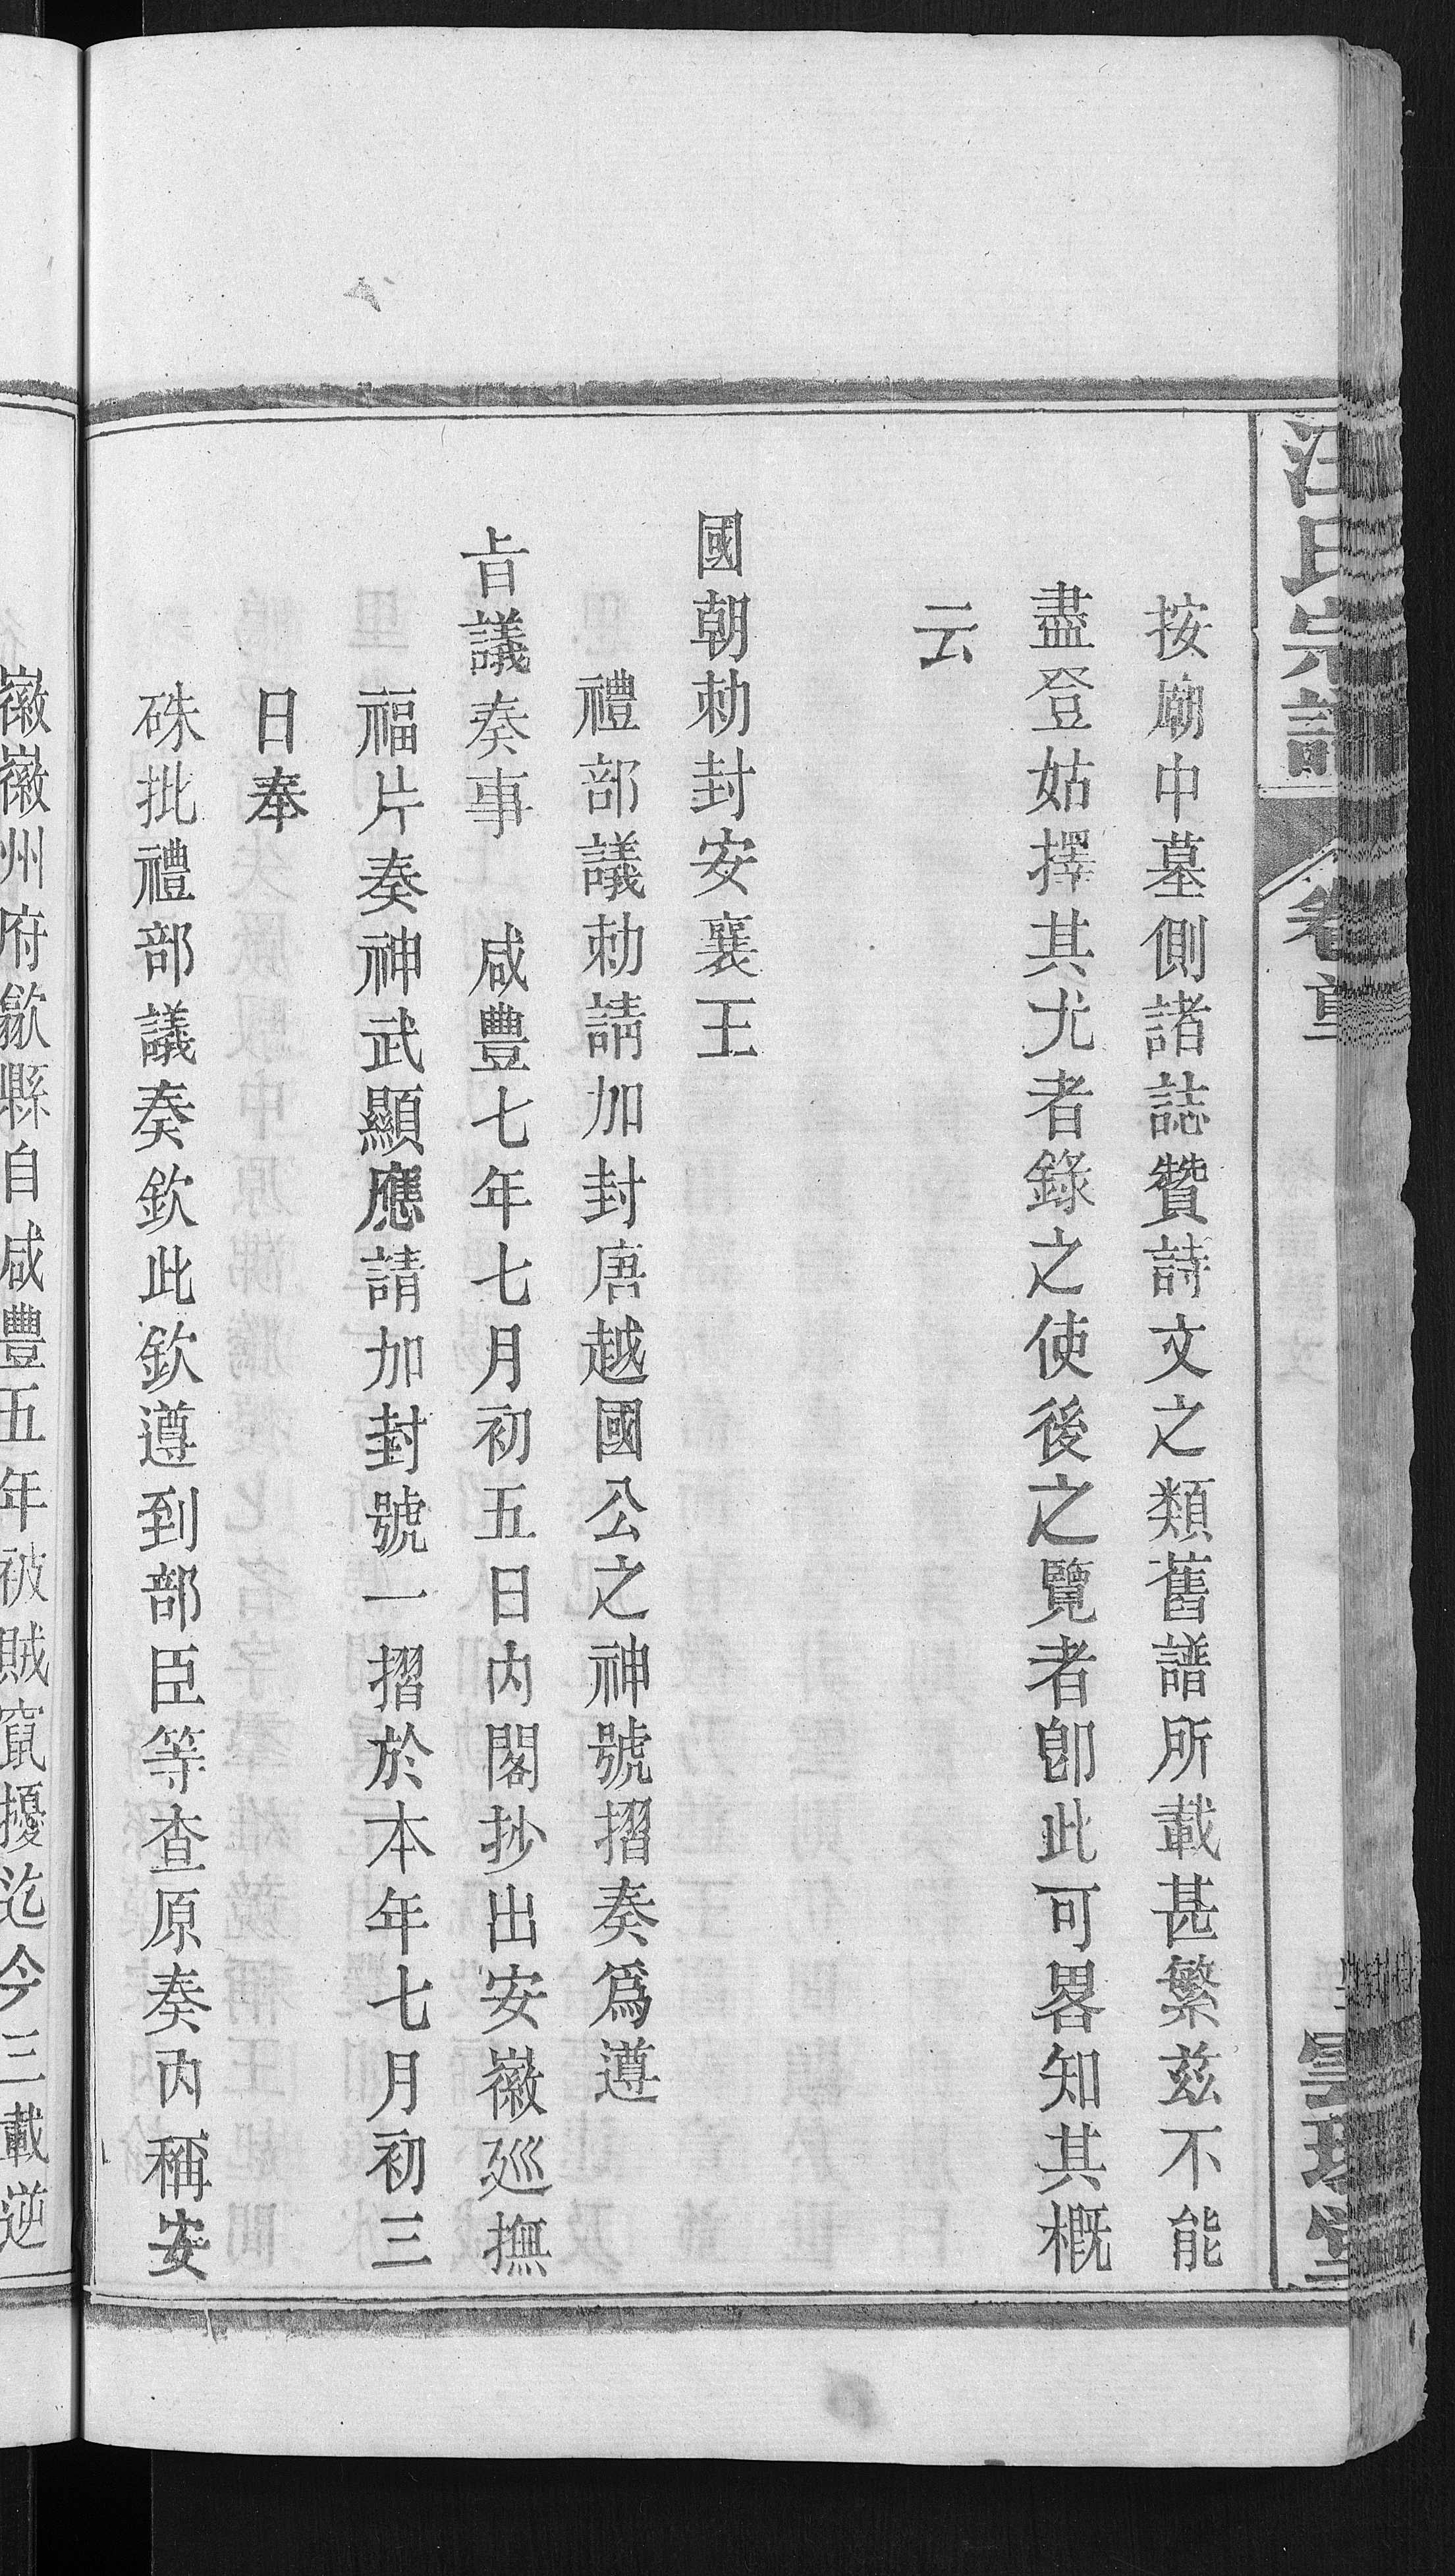 汪氏宗譜
卷首
按廟中墓側諸誌贊詩文之類舊譜所載甚繁茲不能
盡登姑擇其尤者錄之使後之覽者卽此可畧知其概
云
國朝勅封安襄王
禮部議勅請加封唐越國公之神號摺奏爲遵
旨議奏事 咸豐七年七月初五日內閣抄出安徽巡撫
福片奏神武顯應請加封號一摺於本年七月初三
日奉
硃批禮部議奏欽此欽遵到部臣等查原奏內稱安
徽徽州府歙縣自咸豐五年被賊竄擾迄今三載逆